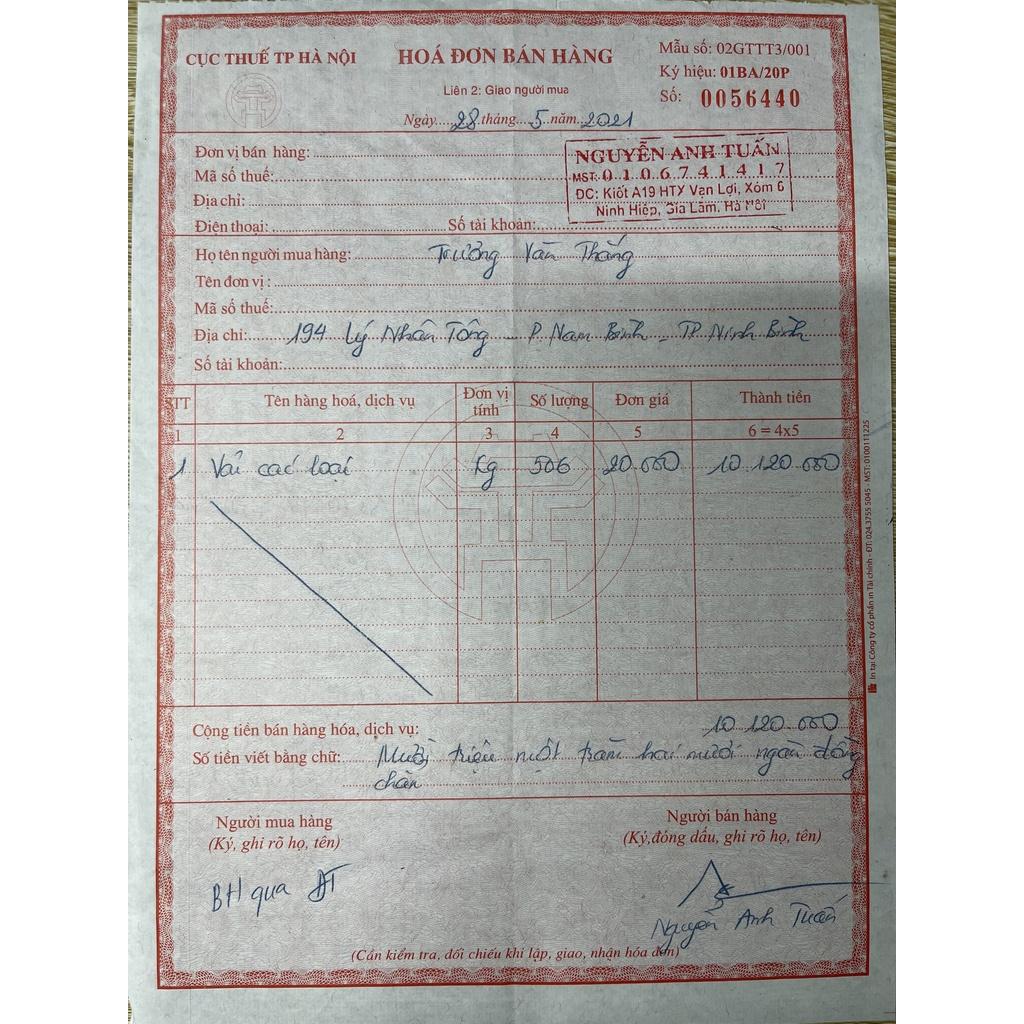 CỤC THUẾ TP HÀ NỘI
HOÁ ĐƠN BÁN HÀNG
Mẫu số: 02GTTT3/001
Liên 2: Giao người mua
Ký hiệu: 01BA/20P
Số: 0056440
Ngày 28 tháng 5 năm 2021
Đơn vị bán hàng:
NGUYỄN ANH TUẤN
Mã số thuế:
MST: 0106741417
Địa chỉ:
ĐC: Kiốt A19 HTX Vạn Lợi, Xóm 6
Ninh Hiệp, Gia Lâm, Hà Nội
Điện thoại: Số tài khoản:
Họ tên người mua hàng: Trương Văn Thắng
Tên đơn vị :
Mã số thuế:
Địa chỉ: 194 Lý Nhân Tông - P Nam Bình - TP Ninh Bình
Số tài khoản:
STT Tên hàng hoá, dịch vụ Đơn vị tính Số lượng Đơn giá Thành tiền
1 2 3 4 5 6 = 4x5
1 Vải các loại Kg 506 20 000 10 120 000
Cộng tiền bán hàng hóa, dịch vụ: 10 120 000
Số tiền viết bằng chữ: Mười triệu một trăm hai mươi ngàn đồng
chẵn
Người mua hàng Người bán hàng
(Ký, ghi rõ họ, tên) (Ký,đóng dấu, ghi rõ họ, tên)
BH qua ĐT
Nguyễn Anh Tuấn
(Cần kiểm tra, đối chiếu khi lập, giao, nhận hóa đơn)
In tại Công ty cổ phần in Tài chính - ĐT: 024.3755 5045 - MST: 0100111225